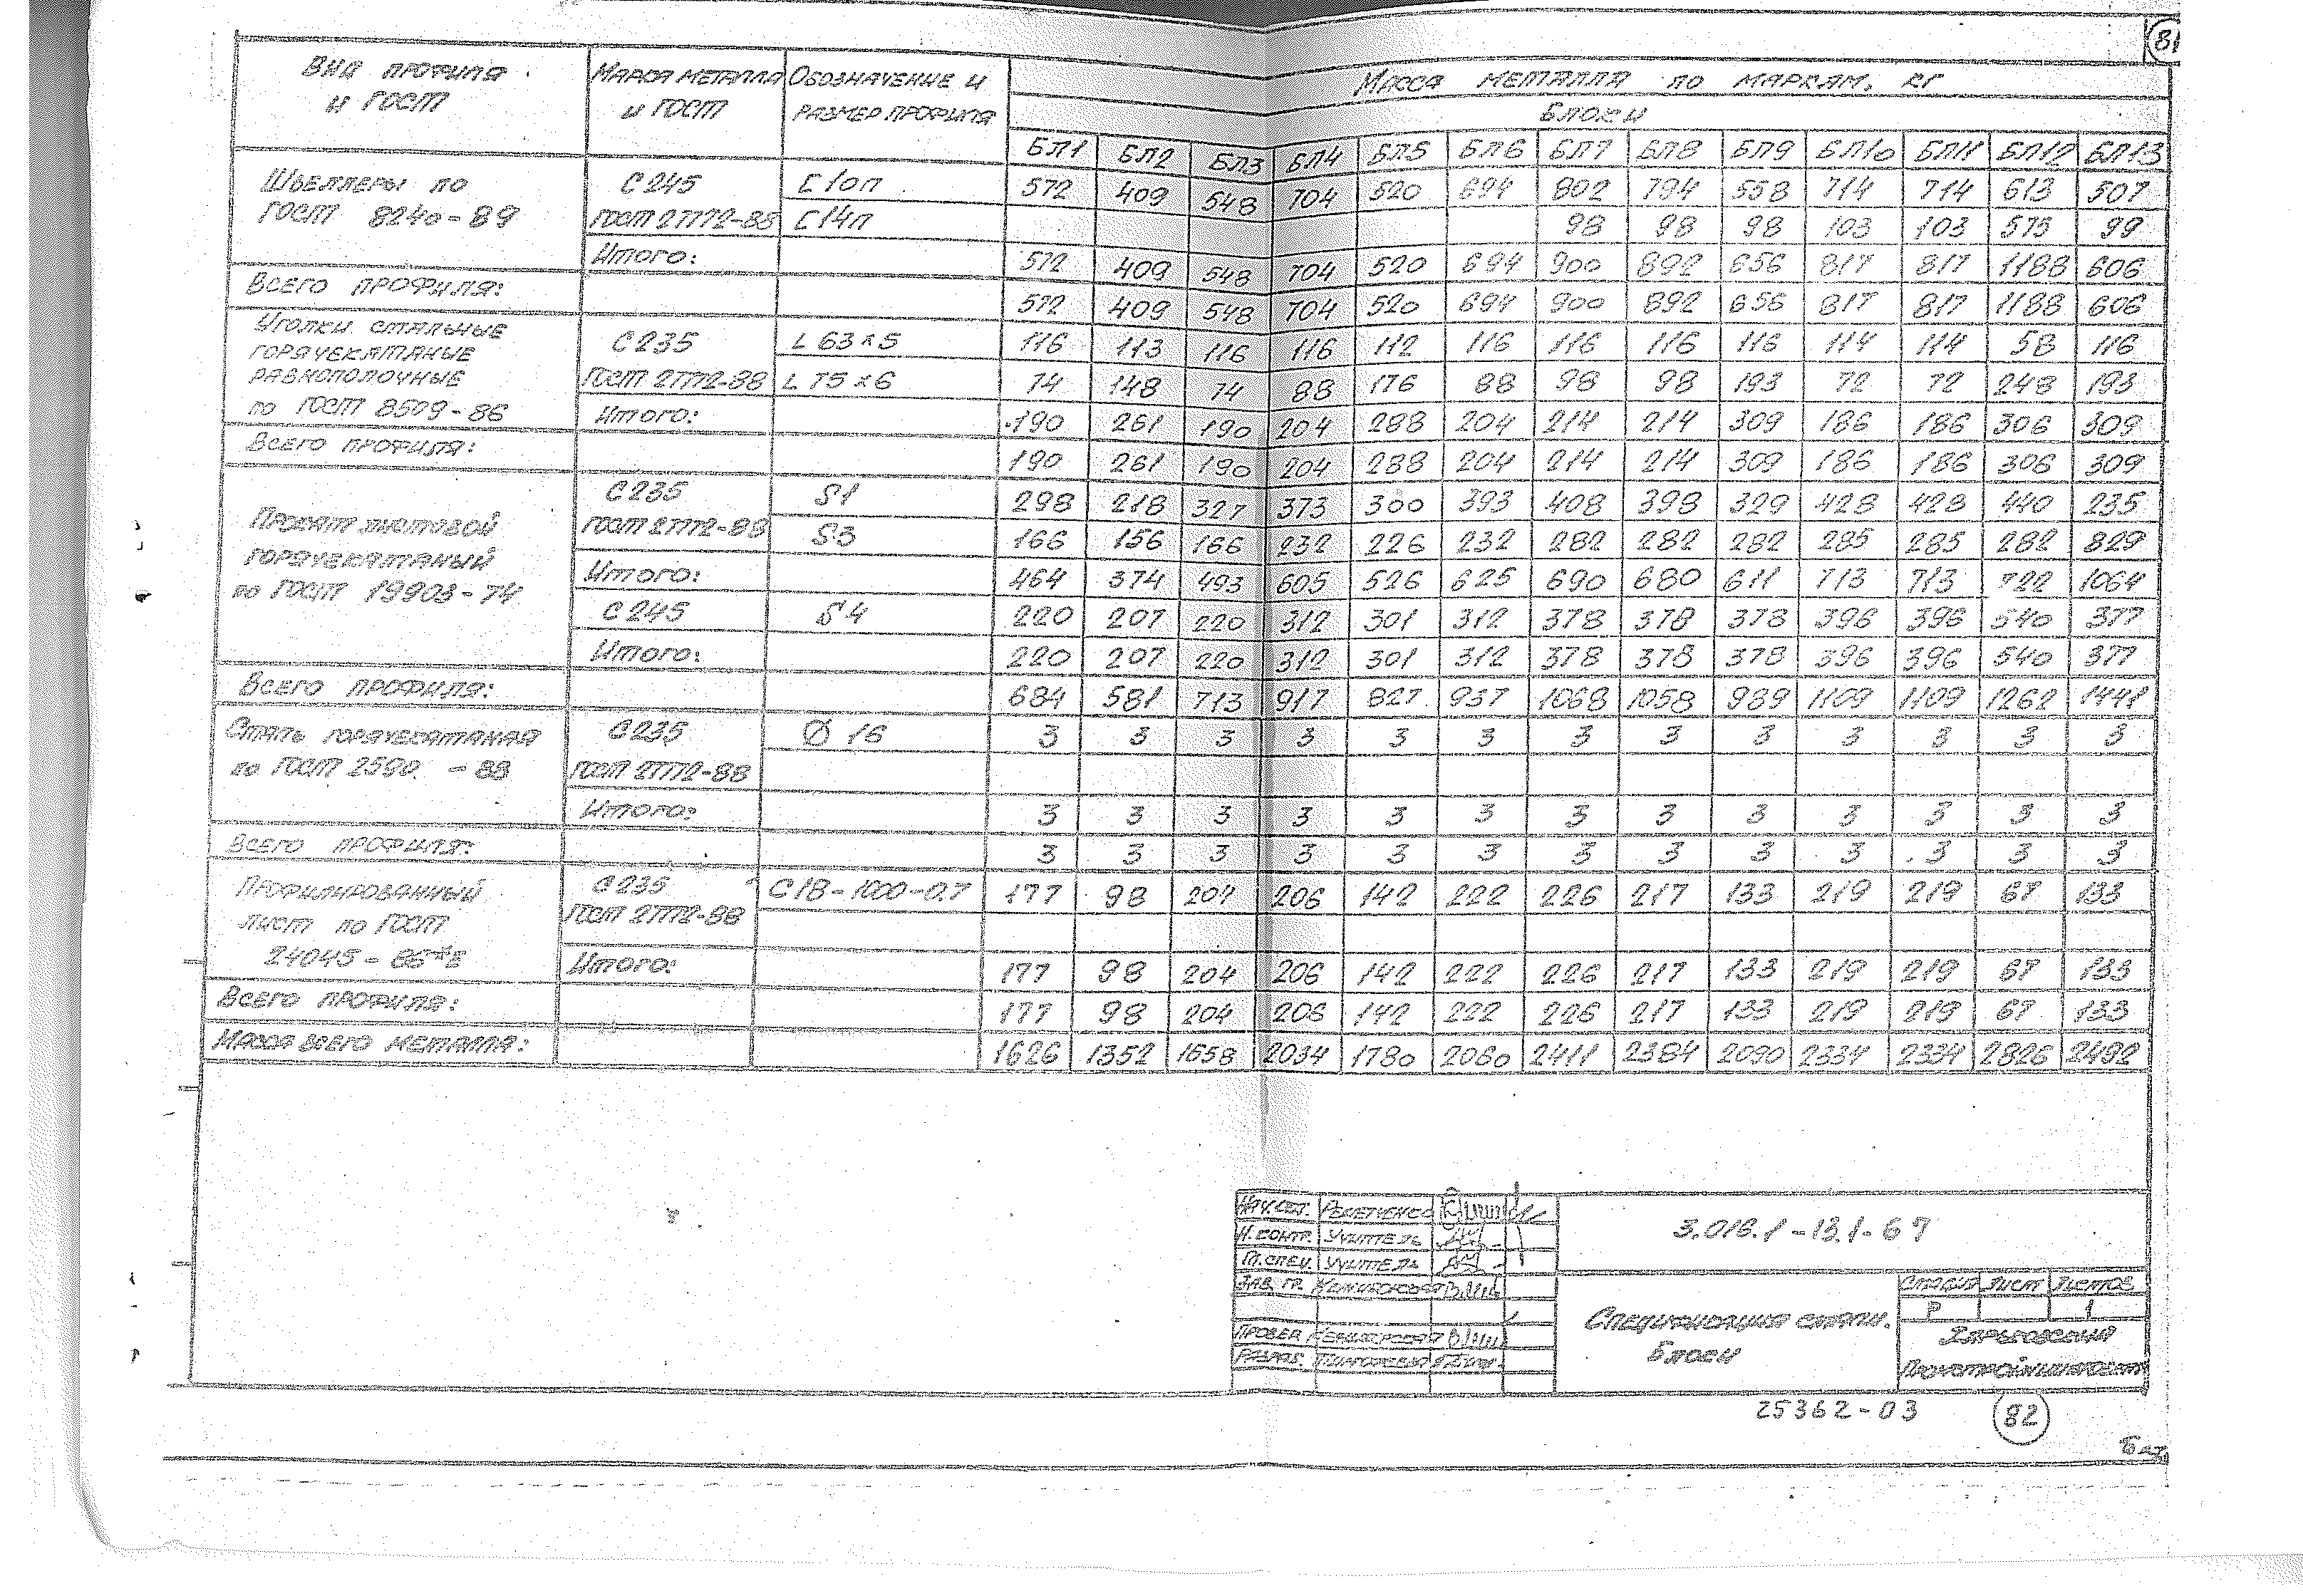 81
Вид профиля и ГОСТ | Марка металла и ГОСТ | Обозначение и размер профиля | Масса металла по маркам, кг
Блоки
БЛ1 БЛ2 БЛ3 БЛ4 БЛ5 БЛ6 БЛ7 БЛ8 БЛ9 БЛ10 БЛ11 БЛ12 БЛ13
Швеллеры по ГОСТ 8240-89 | С245 ГОСТ 27772-88 | [ 10п | 572 409 548 704 520 694 802 794 558 714 714 613 507
[ 14п | 98 98 98 103 103 575 99
Итого: 572 409 548 704 520 694 900 892 656 817 817 1188 606
Всего профиля: 572 409 548 704 520 694 900 892 656 817 817 1188 606
Уголки стальные горячекатаные равнополочные по ГОСТ 8509-86 | С235 ГОСТ 27772-88 | L 63х5 | 116 113 116 116 112 116 116 116 116 114 114 58 116
L 75х6 | 74 148 74 88 176 88 98 98 193 72 72 248 193
Итого: 190 261 190 204 288 204 214 214 309 186 186 306 309
Всего профиля: 190 261 190 204 288 204 214 214 309 186 186 306 309
Прокат листовой горячекатаный по ГОСТ 19903-74 | С235 ГОСТ 27772-88 | S1 | 298 218 327 373 300 393 408 398 329 428 428 440 235
S3 | 166 156 166 232 226 232 282 282 282 285 285 282 829
Итого: 464 374 493 605 526 625 690 680 611 713 713 722 1064
С245 | S4 | 220 207 220 312 301 312 378 378 378 396 396 540 377
Итого: 220 207 220 312 301 312 378 378 378 396 396 540 377
Всего профиля: 684 581 713 917 827 937 1068 1058 989 1109 1109 1262 1441
Сталь горячекатаная по ГОСТ 2590-88 | С235 ГОСТ 27772-88 | Ø 16 | 3 3 3 3 3 3 3 3 3 3 3 3 3
Итого: 3 3 3 3 3 3 3 3 3 3 3 3 3
Всего профиля: 3 3 3 3 3 3 3 3 3 3 3 3 3
Профилированный лист по ГОСТ 24045-86*Е | С235 ГОСТ 27772-88 | С18-1000-0.7 | 177 98 204 206 142 222 226 217 133 219 219 67 133
Итого: 177 98 204 206 142 222 226 217 133 219 219 67 133
Всего профиля: 177 98 204 206 142 222 226 217 133 219 219 67 133
Масса всего металла: 1626 1352 1658 2034 1780 2060 2411 2384 2090 2334 2334 2826 2492
Нач. сект.
Н. контр. Учитель
Гл. спец. Учитель
Зав. гр.
Провер
Разраб.
3.016.1-13.1-67
Спецификация стали.
Блоки
Стадия Лист Листов
Р 1
Харьковский
Промстройниипроект
25362-03 82